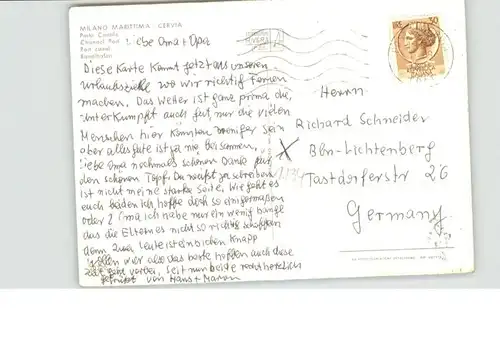 MILANO MARITTIMA - CERVIA
Porto Canale
Channel Port
Port canal
Liebe Oma + Opa
Diese Karte kommt jetzt aus unseren
Urlaubsziele wo wir richtig Ferien
machen. Das Wetter ist ganz prima die
Unterkunft auch gut, nur die vielen
Menschen hier könnten weniger sein
aber alles gute ist ja nie beisammen.
Liebe Oma nochmals schönen Dank für
den schönen Topf. Du weißt ja schreiben
ist nicht meine starke Seite. Wie geht es
euch beiden ich hoffe doch so einigermaßen
oder? Oma ich habe nur ein wenig bange
das die Eltern es nicht so richtig schaffen
denn zwei Leute ist ein bichen knapp
wir also das beste hoffen auch diese
geht vorbei, Seit nun beide recht herzlich
gegrüßt von Hans + Marion
50
Herrn
Richard Schneider
Bln-Lichtenberg
Tastdorferstr 26
Germany